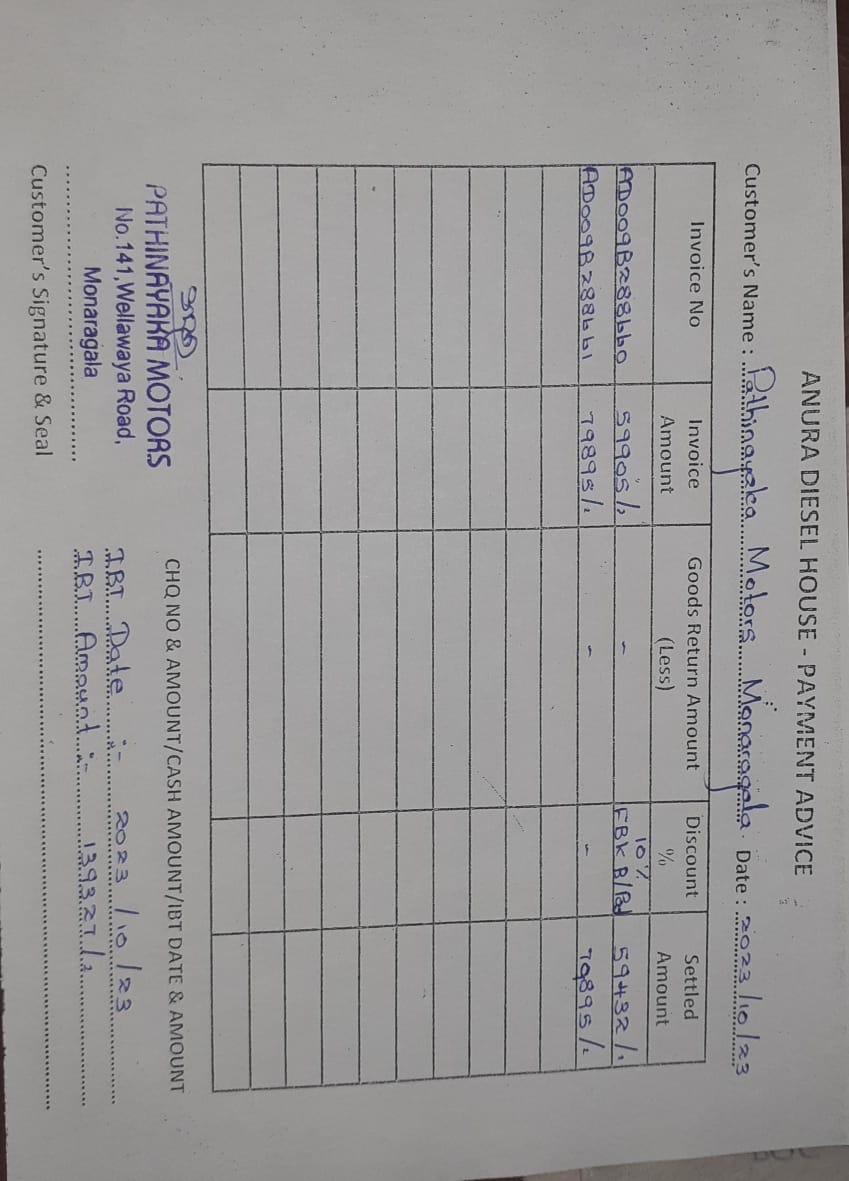 ANURA DIESEL HOUSE - PAYMENT ADVICE
Customer's Name : Pathinayaka Motors Monaragala. Date : 2023/10/23
Invoice No Invoice Amount Goods Return Amount (Less) Discount % Settled Amount
AD009B288660 59905/. - 10% FBK B/Pad 59432/.
AD009B288661 79895/. - - 79895/.
PATHINAYAKA MOTORS
No.141,Wellawaya Road,
Monaragala
Customer's Signature & Seal
CHQ NO & AMOUNT/CASH AMOUNT/IBT DATE & AMOUNT
IBT Date :- 2023/10/23
IBT Amount :- 139327/.